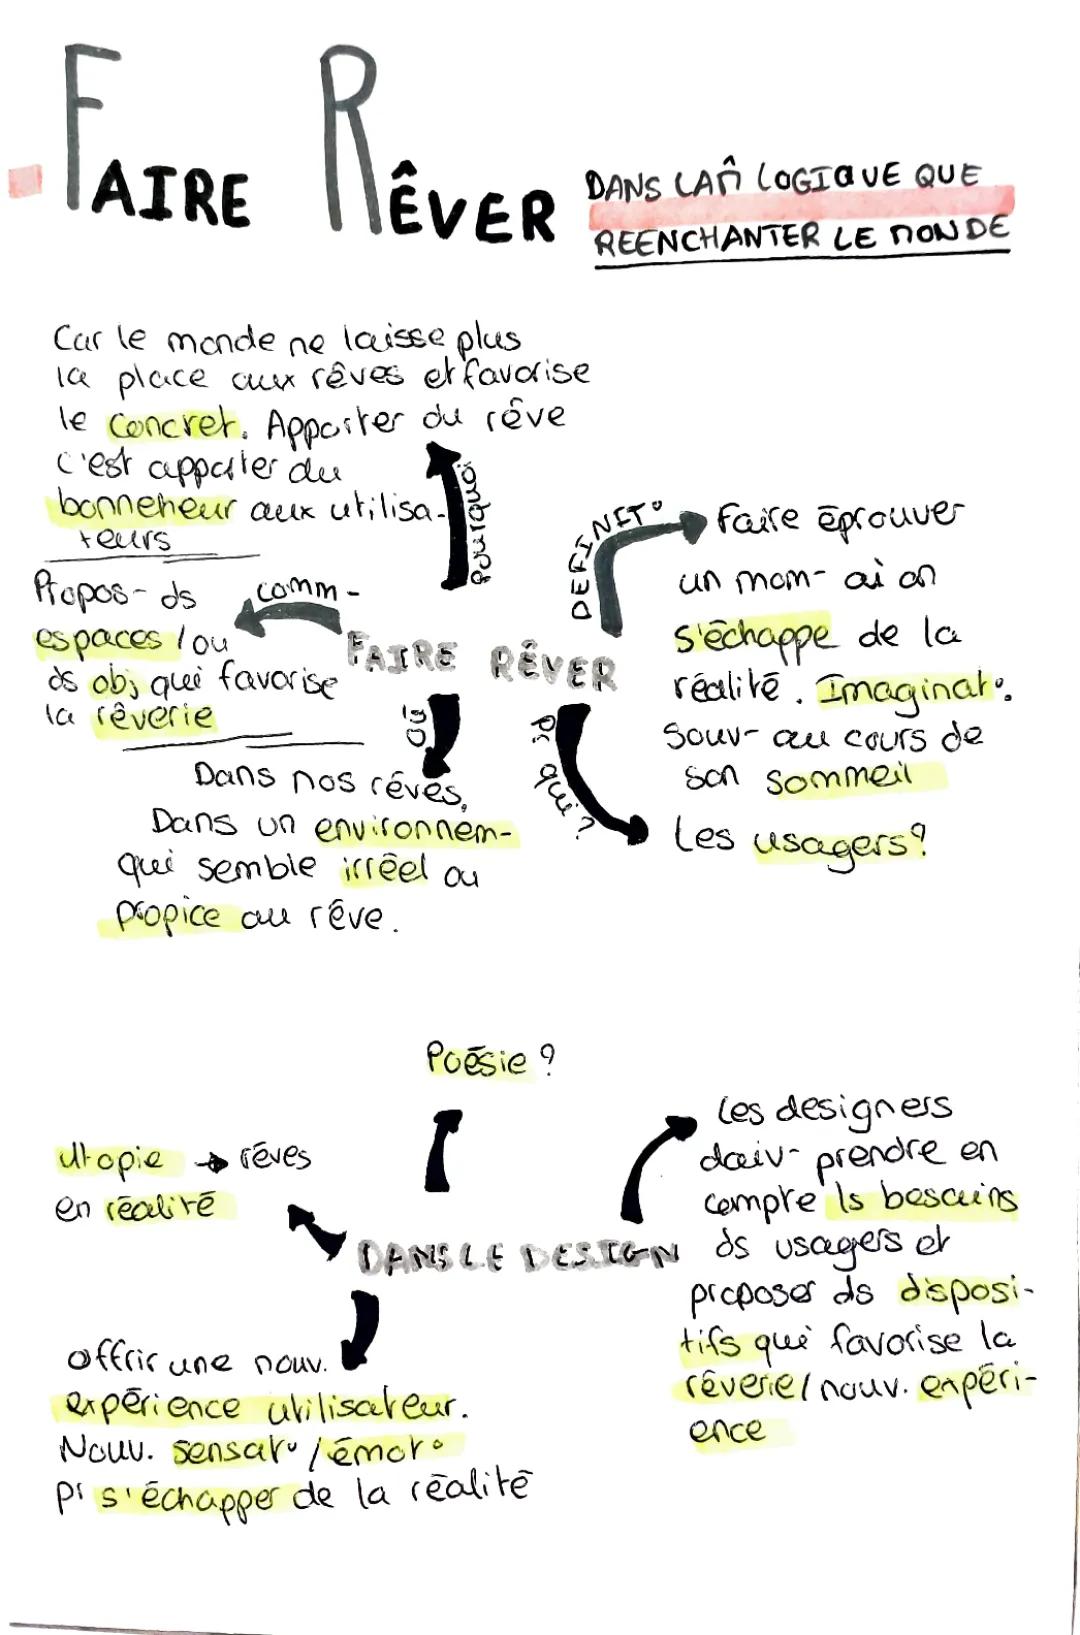 FAIRE RÊVER
DANS LA m̂ LOGIQUE QUE
REENCHANTER LE MONDE
Car le monde ne laisse plus
la place aux rêves et favorise
le concret. Apporter du rêve
c'est apporter du
bonneheur aux utilisa-
teurs
Pourquoi
DEFINIT°
Faire éprouver
un mom- où on
s'échappe de la
réalité. Imaginat°.
Souv- au cours de
son sommeil
Propos- ds
espaces / ou
ds obj qui favorise
la rêverie
comm-
FAIRE RÊVER
Où
à qui ?
Dans nos rêves,
Dans un environnem-
qui semble irréel ou
propice au rêve.
Les usagers ?
Poésie ?
utopie → rêves
en réalité
DANS LE DESIGN
Les designers
doiv- prendre en
compte ls besoins
ds usagers et
proposer ds disposi-
tifs qui favorise la
rêverie / nouv. expéri-
ence
offrir une nouv.
expérience utilisateur.
Nouv. sensat° / émot°
pr s'échapper de la réalité